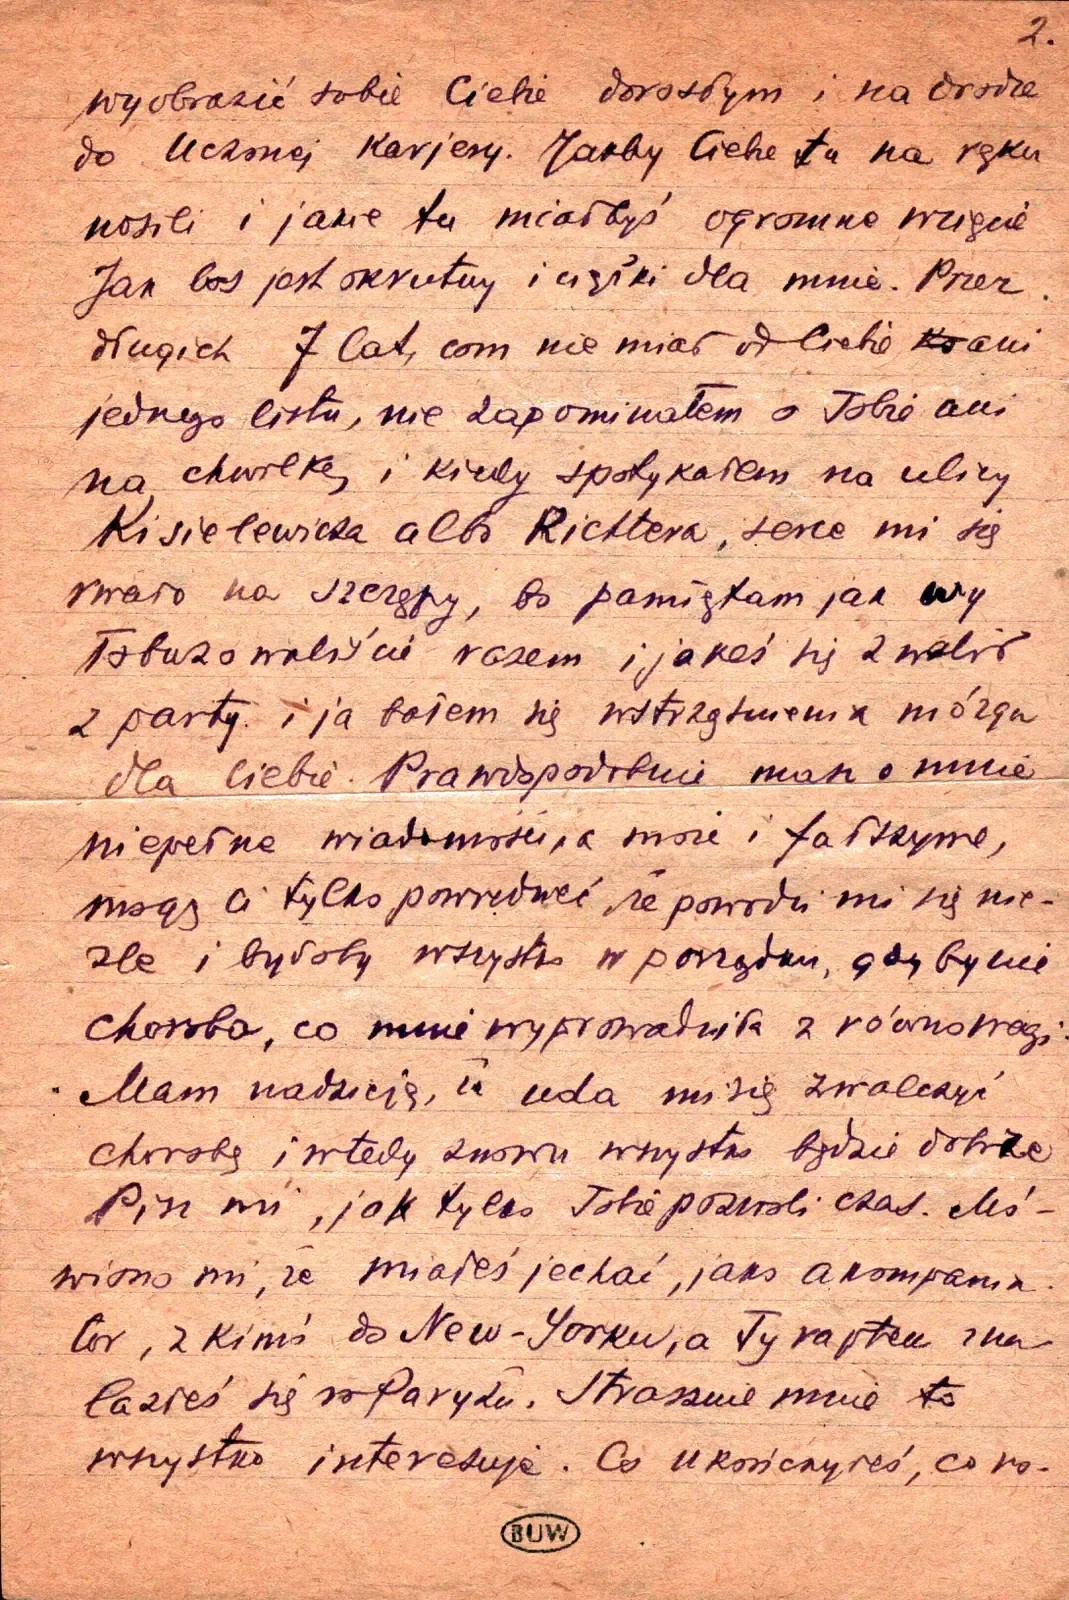 2.
wyobrazić sobie Ciebie dorosłym i na drodze
do uczonej karjery. Jakby Ciebie tu na ręku
nosili i jakie tu miałbyś ogromne wzięcie
Jak los jest okrutny i ciężki dla mnie. Przez
długich 7 lat, com nie miał od Ciebie ani
jednego listu, nie zapominałem o Tobie ani
na chwilkę, i kiedy spotykałem na ulicy
Kisielewicza albo Richtera, serce mi się
rwało na szczępy, bo pamiętam jak wy
łobuzowaliście razem i jakeś się zwalił
z party. i ja bałem się wstrząśnienia mózgu
dla Ciebie. Prawdopodobnie masz o mnie
niepełne wiadomości, a może i fałszywe,
mogę Ci tylko powiedzieć, że powodzi mi się nie-
źle i byłoby wszystko w porządku, gdyby nie
choroba, co mnie wyprowadziła z równowagi.
Mam nadzieję, że uda mi się zwalczyć
chorobę i wtedy znowu wszystko będzie dobrze
Pisz mi, jak tylko Tobie pozwoli czas. Mó-
wiono mi, że miałeś jechać, jako akompania-
tor, z kimś do New-Yorku, a Ty raptem zna-
lazłeś się w Paryżu. Strasznie mnie to
wszystko interesuje. Co ukończyłeś, co ro-
BUW